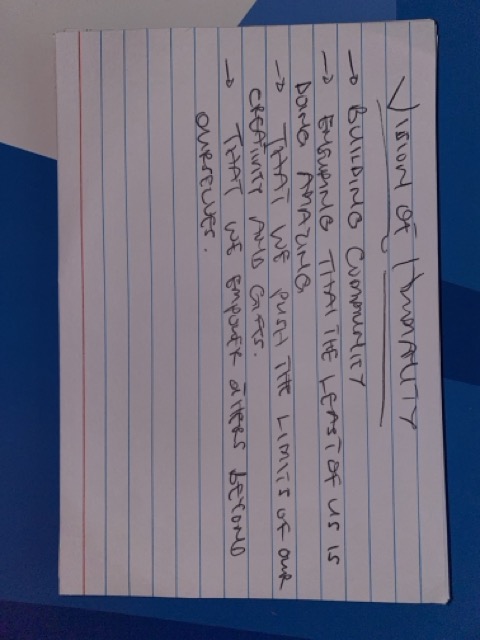 VISION OF HUMANITY
→ BUILDING COMMUNITY
→ ENSURING THAT THE LEAST OF US IS
DOING AMAZING
→ THAT WE PUSH THE LIMITS OF OUR
CREATIVITY AND GIFTS.
→ THAT WE EMPOWER OTHERS BEYOND
OURSELVES.